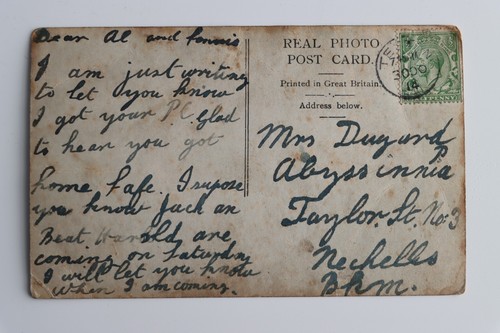 Dear Al and
I am just writing
to let you know
I got your P.C. Glad
to hear you got
home safe. I supose
you know Jack an
Beat. Harold are
coming on Saturday
I will let you know
When I am coming.
REAL PHOTO
POST CARD.
Printed in Great Britain.
Address below.
Mrs Dugard
Abyssinnia
Taylor. St. No 3
Nechells
Bhm.